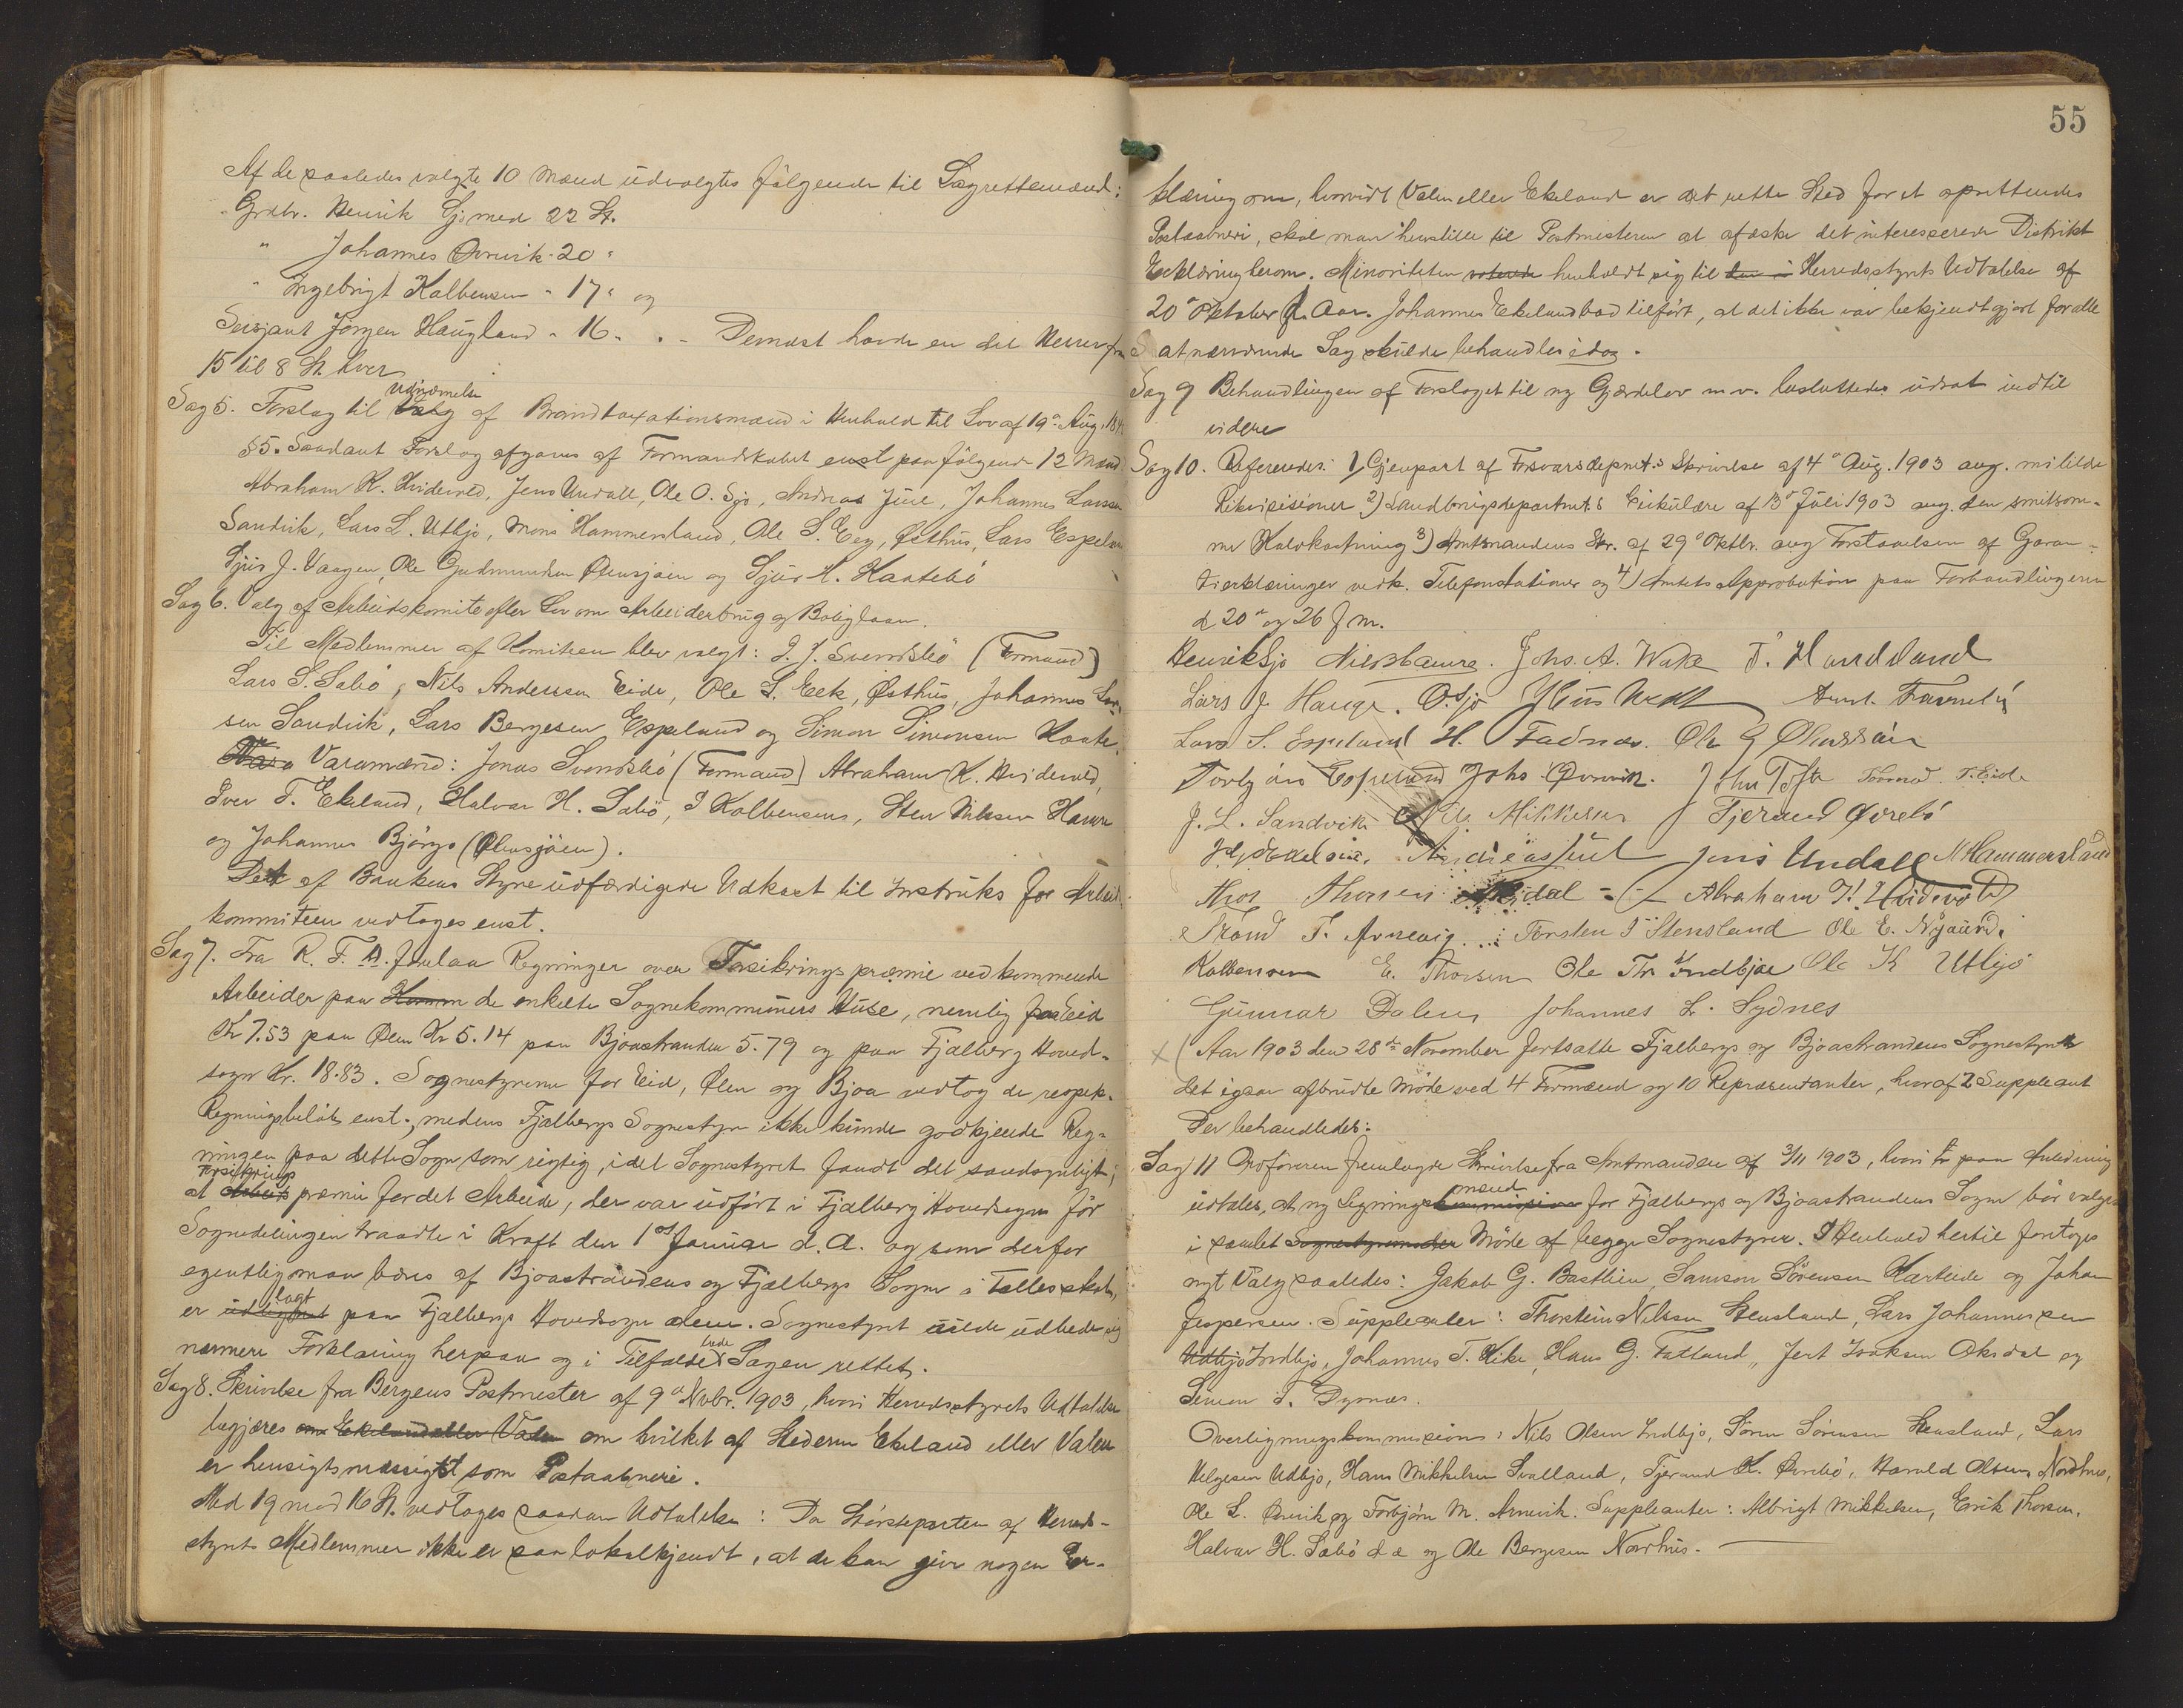 Af de saaledes valgte 10 Mænd udvalgtes følgende til Lagrettemænd:
Grdbr. Henrik Sjo med 22 St.
" Johannes Ørrevik - 20 "
" Ingebrigt Kalbensen " 17 " og
Sersjant Jörgen Haugland " 16 " . - Dernæst havde en del Herrer fra
15 til 8 St. hver
Sag 5. Forslag til Valg Udnævnelse af Brandtaxationsmænd i Henhold til Lov af 19de Aug. 1845
§5. Saadant Forslag afgaves af Formandskabet enst paa følgende 12 Mænd
Abraham K. Hidevold, Jens Undall, Ole O. Sjo, Andreas Juul, Johannes Larssen
Sandvik, Lars L. Utbjo, Mons Hammersland, Ole S. Eeg, Østhus, Lars Espeland
Sjur J. Vaagen, Ole Gudmundsen Ølensjøen og Sjur H. Kaatebö
Sag 6. Valg af Arbeidskomite efter Lov om Arbeiderbrug og Boliglaan.
Til Medlemmer af Komiteen blev valgt: J. J. Svendsbö (Formand)
Lars S. Sæbö, Nils Anderssen Eide, Ole S. Eek, Østhus, Johannes Lars-
sen Sandvik, Lars Bergesen Espeland og Simon Simonsen Kaate-
Vara Varamænd: Jonas Svendsbö (Formand) Abraham K. Hidevold,
Iver T. Ekeland, Halvar H. Sæbö, I Kalbensen, Sten Nilssen Hamre
og Johannes Bjørgo (Ølensjöen).
Det af Bankens Styre udfærdigede Udkast til Instruks for Arbeids
kommiteen vedtoges enst.
Sag 7. Fra R. F. A. forelaa Regninger over Forsikringspræmie vedkommende
Arbeider paa de enkelte Sognekommuners Huse, nemlig paa Eid
Kr 7.53 paa Ølen Kr 5.14 paa Bjoastranden 5.79 og paa Fjælberg Hoved-
sogn Kr. 18.83. Sognestyrerne for Eid, Ølen og Bjoa vedtog de respek.
Regningsbeløb enst., medens Fjælbergs Sognestyre ikke kunde godkjende Reg-
ningen paa dette Sogn som rigtig, idet Sognestyret fandt det sandsynligt,
at Arbeids Forsikrings præmie for det Arbeide, der var udført i Fjælberg Hovedsogn før
Sognedelingen traadte i Kraft den 1ste Januar d. A. og som derfor
egentlig maa bæres af Bjoastrandens og Fjælbergs Sogne i Fællesskab,
er udlignet lagt paa Fjælbergs Hovedsogn alene. Sognestyret vilde udbede sig
nærmere Forklaring herpaa og i Tilfælde bede Sagen rettet.
Sag 8. Skrivelse fra Bergens Postmester af 9de Novbr. 1903, hvori Herredsstyrets Udtalelse
begjæres om Ekeland eller Valen om hvilket af Stederne Ekeland eller Valen
er hensigtsmæssigst som Postaabneri.
Med 19 mod 16 St. vedtoges saadan Udtalelse: Da Størsteparten af Herreds-
styrets Medlemmer ikke er saa lokalkjendt, at de kan give nogen Er-
55
klæring om, hvorvidt Valen eller Ekeland er det rette Sted for et oprettendes
Postaabneri, skal man henstille til Postmesteren at afæske det interesserede Distrikt
Erklæring herom. Minoriteten voterede henholdt sig til Herredsstyrets Udtalelse af
20de Oktober f. Aar. Johannes Ekeland bad tilført, at det ikke var bekjendtgjort for alle
at nærværende Sag skulde behandles idag.
Sag 9 Behandlingen af Forslaget til ny Gjærdelov m.v. besluttedes udsat indtil
videre
Sag 10. Refereredes: 1) Gjenpart af Forsvarsdepmt.s Skrivelse af 4de Aug. 1903 ang. militære
Rekvisisioner 2) Landbrugsdepartmt.s Cirkulære af 13de Juli 1903 ang. den smitsom-
me Kalvkastning 3) Amtmandens Skr. af 29de Oktbr. ang Forstaaelsen af Garan-
tierklæringer vedk. Telefonstationer og 4) Amtets Approbation paa Forhandlingerne
d 20de og 26 f m.
Henrik Sjo Nils Hamre. Johs. A. Wake T. Handeland
Lars J. Hauge. O. Sjo
Lars S. Espeland H. Fadnæs. Ole G Ølensjøen
Espeland Johs Ørrevik. John Tofte T. Eide
J. L. Sandvik Mikkelsen Tjerand Øvrebö
Andreas Juul Jens Undall M Hammersland
Thorsen Abraham K. Hidevold
Trond T. Arnevig Torsten T Stensland Ole E. Nygaard.
Kalbensen E. Thorsen Ole Th Indbjoe Ole K Utbjo
Gunnar Dalen Johannes L. Sydnes
X (Aar 1903 den 28de November fortsatte Fjælbergs og Bjoastrandens Sognestyrer
det igaar afbrudte Møde ved 4 Formænd og 10 Repræsentanter, hvoraf 2 Suppleant
Der behandledes:
Sag 11 Ordføreren fremlagde Skrivelse fra Amtmanden af 3/11 1903, hvori paa Anledning
udtales, at ny Ligningskommission mænd for Fjælbergs og Bjoastrandens Sogne bør vælges
i samlet Sognestyremøde Møde af begge Sognestyrer. I Henhold hertil foretoges
nyt Valg saaledes: Jakob G. Bastlien, Samson Sørensen Kærleide og Johan
Jespersen. Suppleanter: Thorstein Nilssen Stensland, Lars Johannessen
Utbjo Indbjo, Johannes T. Vike, Hans G. Fatland, Jert Isaksen Oksdal og
Simon T. Dypnæs.
Overligningskommission: Nils Olsen Indbjo, Søren Sørensen Stensland, Lars
Helgesen Udbjo, Hans Mikkelsen Svalland, Tjerand K. Øvrebö, Harald Olsen Nordhus,
Ole L. Ørrevik og Torbjørn M. Arnevik. Suppleanter: Albrigt Mikkelsen, Erik Thorsen,
Halvar H. Sæbö d æ og Ole Bergesen Nordhus.